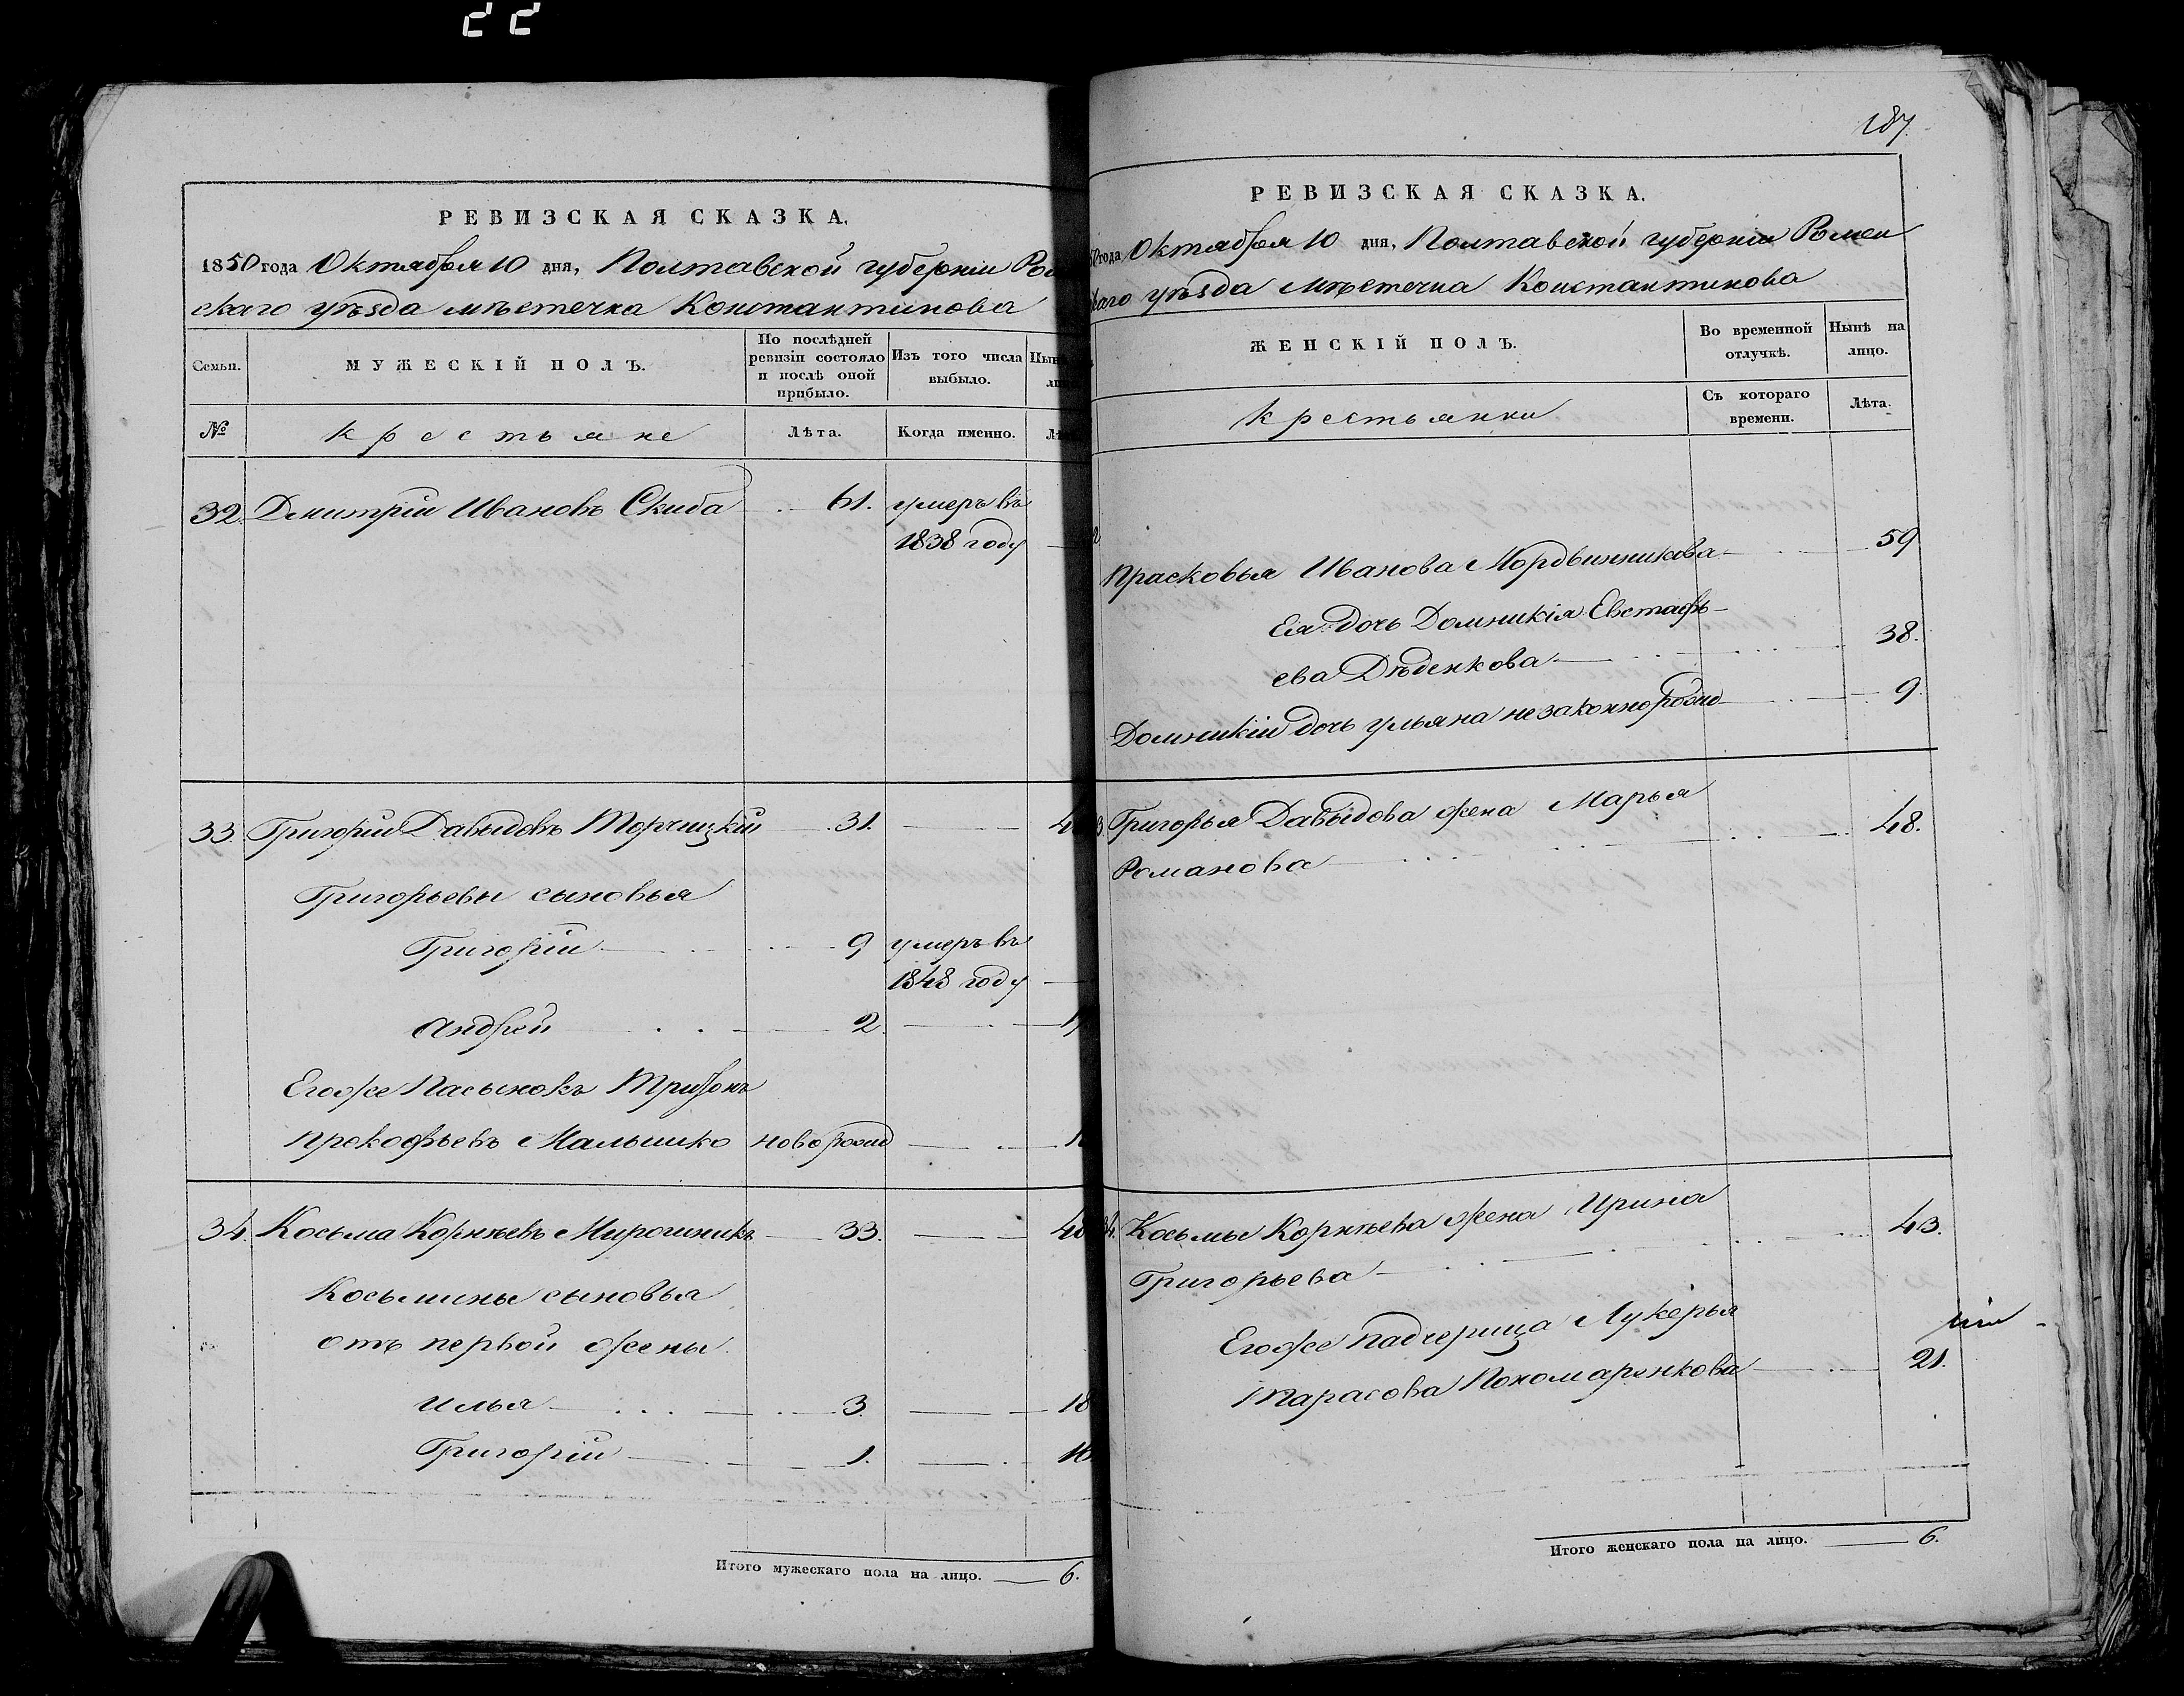 22
РЕВИЗСКАЯ СКАЗКА.
1850 года Октября 10 дня, Полтавской губерніи Ро
скаго уѣзда мѣстечка Константинова
Семьи.
МУЖЕСКІЙ ПОЛЪ.
По послѣдней ревизіи состояло и послѣ оной прибыло.
Изъ того числа выбыло.
№
крестьяне
Лѣта.
Когда именно.
32. Дмитрій Ивановъ Скиба 61. умеръ въ
1838 году
33. Григорій Давыдовъ Торчицкій 31.
Григорьевы сыновья
Григорій 9 умеръ въ
1848 году
Андрей 2
Егоже Пасынокъ Трифонъ
Прокофьевъ Малышко новорожд
34. Косьма Корнѣевъ Мирошникъ 33. 48
Косьмины сыновья
отъ первой жены
Илья 3. 18
Григорій 1. 16
Итого мужескаго пола на лицо. 6.
187.
РЕВИЗСКАЯ СКАЗКА.
года Октября 10 дня, Полтавской губерніи Ромен
скаго уѣзда мѣстечка Константинова
ЖЕНСКІЙ ПОЛЪ.
Во временной отлучкѣ.
Нынѣ на лицо.
крестьянки
Съ котораго времени.
Лѣта.
Прасковья Иванова Мордвинникова 59
Ея дочь Домникія Евстафь-
ева Дѣденкова 38.
Домникіи дочь Ульяна незаконнорожд 9
Григорья Давыдова жена Марья
Романова 48.
Косьмы Корнѣева жена Ирина
Григорьева 43.
Егоже падчерица Лукерья
Тарасова Пономаренкова 21.
Итого женскаго пола на лицо. 6.